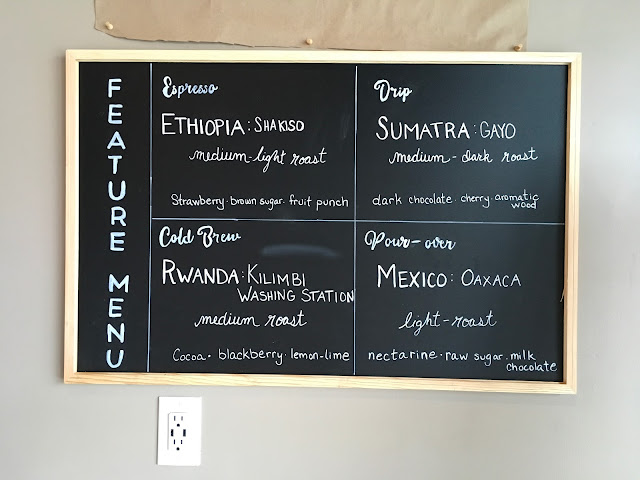 FEATURE MENU
Espresso
ETHIOPIA: SHAKISO
medium-light roast
Strawberry · brown sugar · fruit punch
Drip
SUMATRA: GAYO
medium-dark roast
dark chocolate · cherry · aromatic
wood
Cold Brew
RWANDA: KILIMBI
WASHING STATION
medium roast
Cocoa · blackberry · lemon-lime
Pour-over
MEXICO: OAXACA
light-roast
nectarine · raw sugar · milk
chocolate